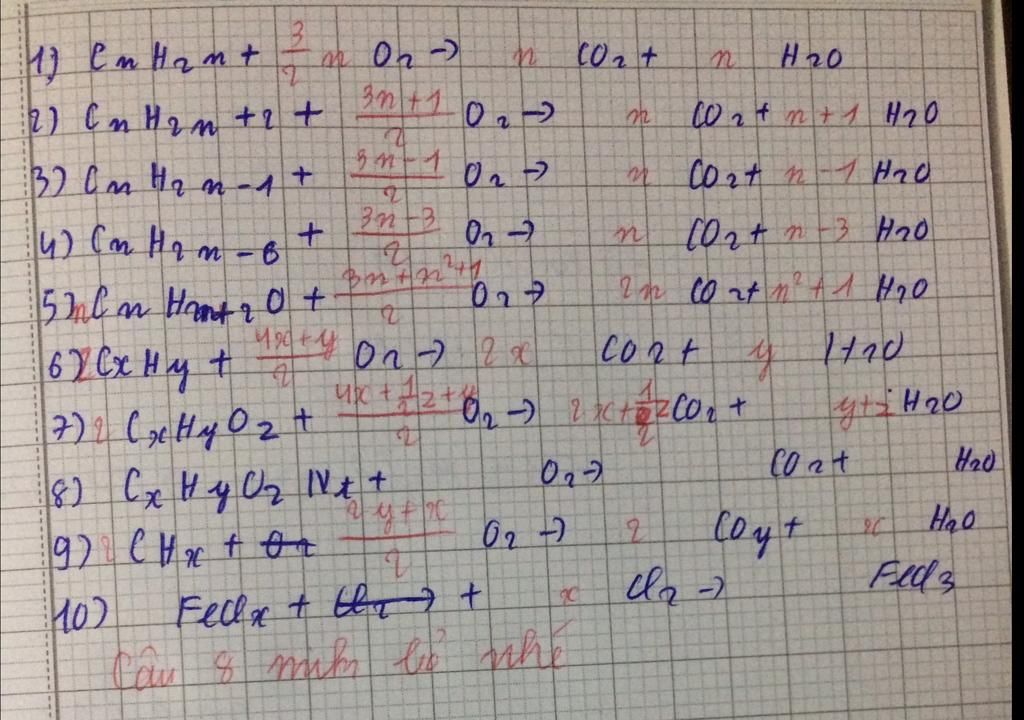 1) CnH2n + 3/2 n O2 → n CO2 + n H2O
2) CnH2n+2 + (3n+1)/2 O2 → n CO2 + n+1 H2O
3) CnH2n-1 + (3n-1)/2 O2 → n CO2 + n-1 H2O
4) CnH2n-6 + (3n-3)/2 O2 → n CO2 + n-3 H2O
5) nCnH2n+2O + (3n+n²+1)/2 O2 → 2n CO2 + n²+1 H2O
6) 2CxHy + (4x+y)/2 O2 → 2x CO2 + y H2O
7) 2 CxHyOz + O2 → 2x+1/2z CO2 + y+z H2O
8) CxHyOz Nt + O2 → CO2 + H2O
9) 2 CHx + (2y+x)/2 O2 → 2 COy + x H2O
10) FeClx + x Cl2 → FeCl3
Câu 8 mình bỏ nhé